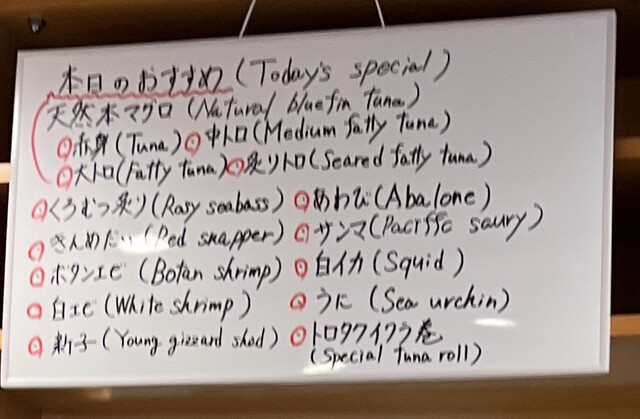 本日のおすすめ (Today's special)
天然本マグロ (Natural bluefin tuna)
赤身 (Tuna) 中トロ (Medium fatty tuna)
大トロ (Fatty tuna) 炙りトロ (Seared fatty tuna)
くろむつ炙り (Rosy seabass) あわび (Abalone)
きんめだい (Red snapper) サンマ (Paciffc saury)
ボタンエビ (Botan shrimp) 白イカ (Squid)
白エビ (White shrimp) うに (Sea urchin)
新子 (Young gizzard shad) トロタクイクラ巻
(Special tuna roll)